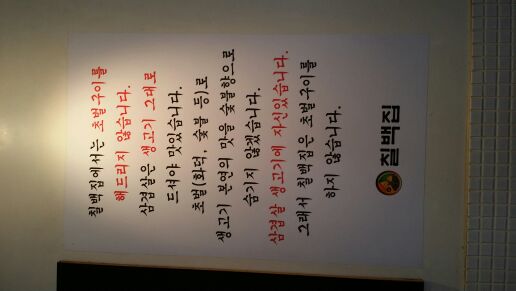 칠백집에서는 초벌구이를
해드리지 않습니다.
삼겹살은 생고기 그대로
드셔야 맛있습니다.
초벌(화덕, 숯불 등)로
생고기 본연의 맛을 숯불향으로
숨기지 않겠습니다.
삼겹살 생고기에 자신있습니다.
그래서 칠백집은 초벌구이를
하지 않습니다.
칠백집